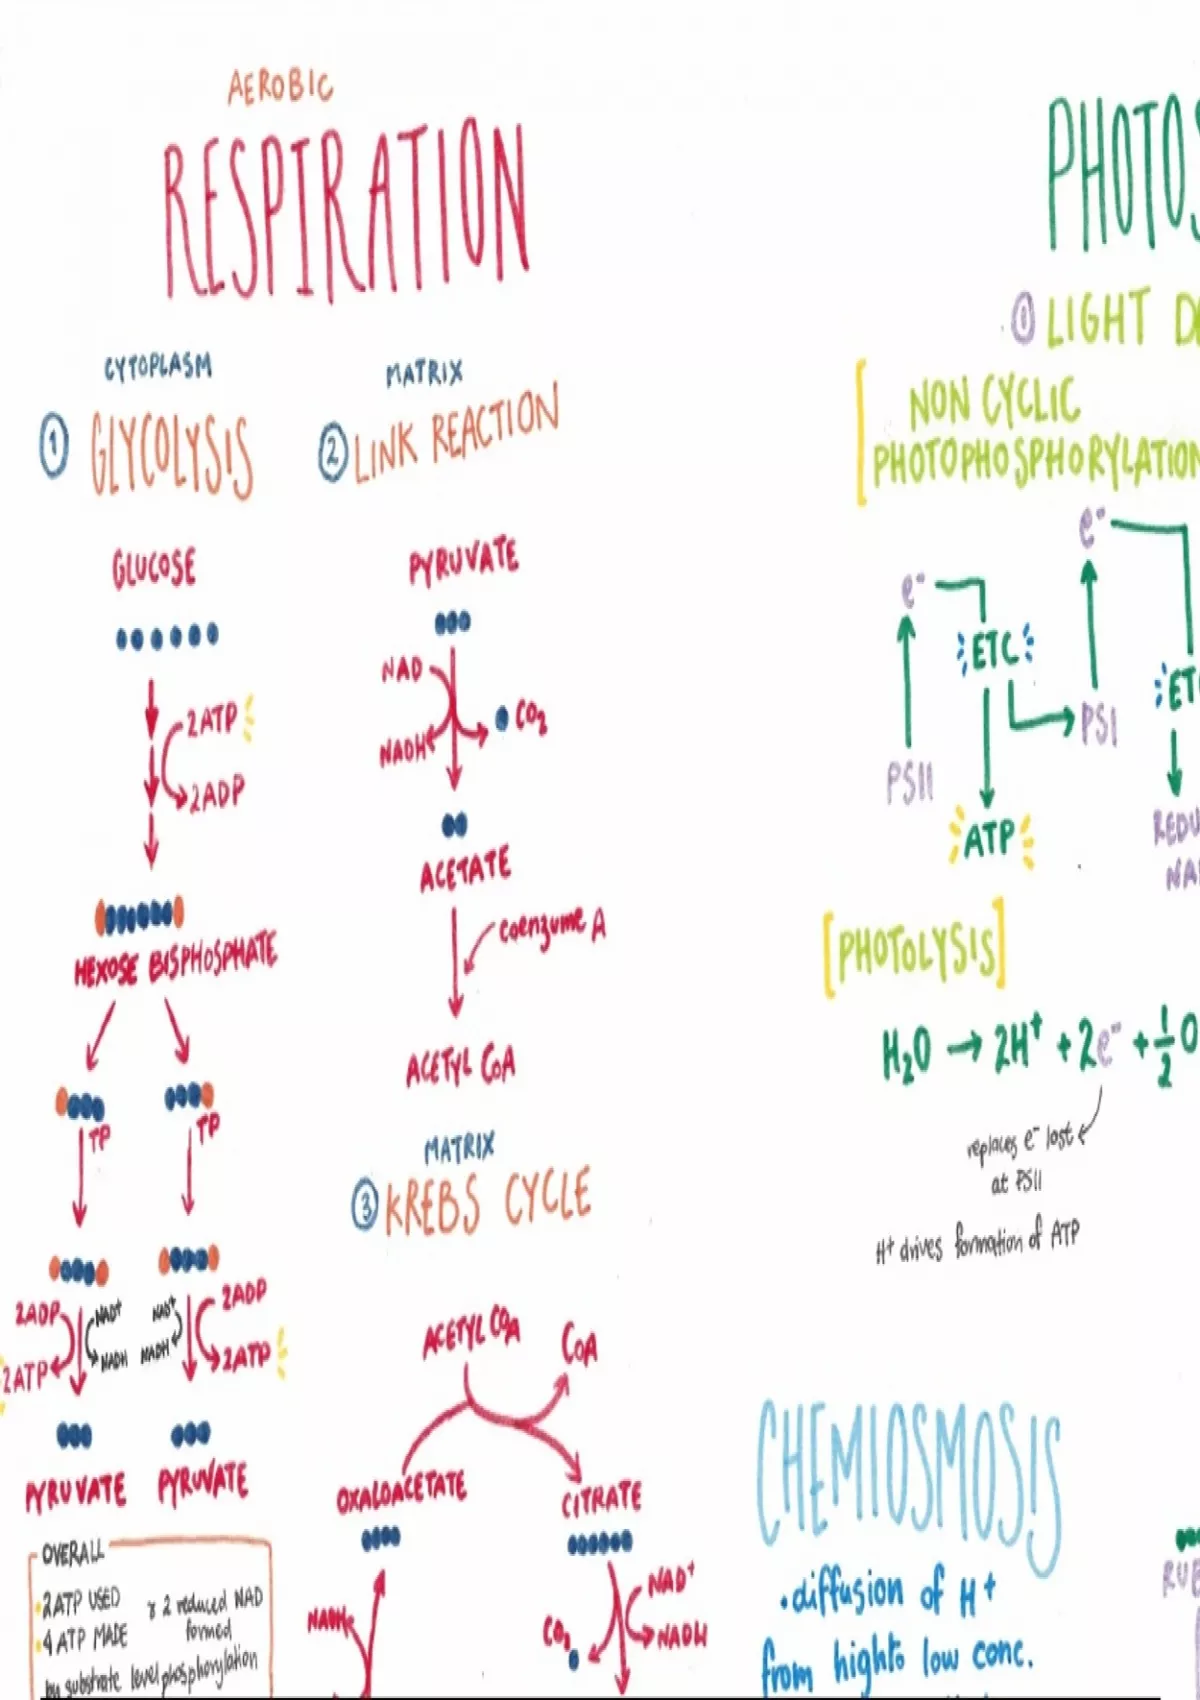 AEROBIC
RESPIRATION
CYTOPLASM
1 GLYCOLYSIS
GLUCOSE
2ATP
2ADP
HEXOSE BISPHOSPHATE
TP TP
2ADP NAD+ NAD+ 2ADP
2ATP NADH NADH 2ATP
PYRUVATE PYRUVATE
OVERALL
2ATP USED
4 ATP MADE
2 reduced NAD
formed
by substrate level phosphorylation
MATRIX
2 LINK REACTION
PYRUVATE
NAD
CO2
NADH
ACETATE
coenzyme A
ACETYL CoA
MATRIX
3 KREBS CYCLE
ACETYL COA
COA
OXALOACETATE
CITRATE
NAD+
NADH
CO2
NADH
PHOTOS
1 LIGHT D
NON CYCLIC
PHOTOPHOSPHORYLATION
e-
e-
ETC
ET
PSI
PSII
ATP
REDU
NA
[PHOTOLYSIS]
H2O → 2H+ + 2e- + 1/2 O
replaces e- lost
at PSII
H+ drives formation of ATP
CHEMIOSMOSIS
• diffusion of H+
from high to low conc.
RUB